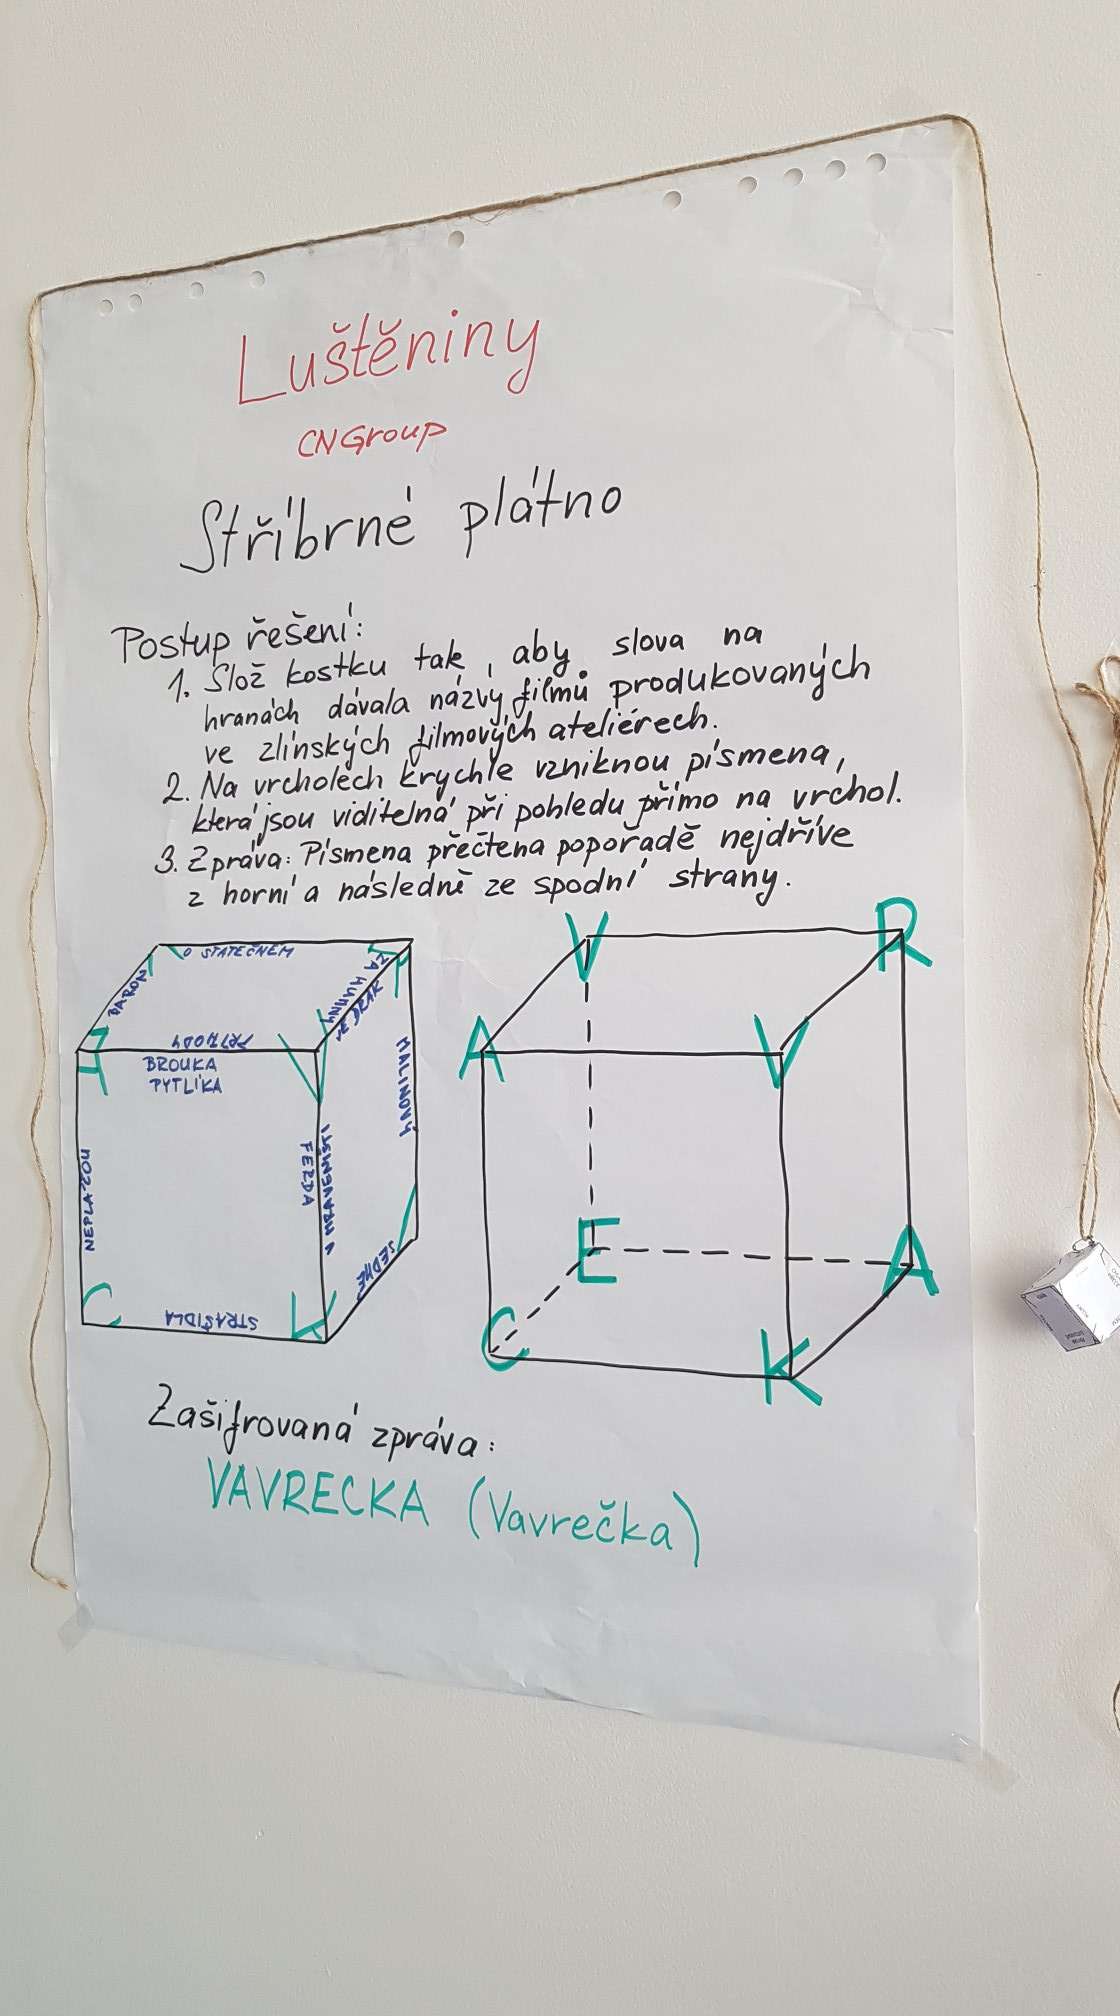 Luštěniny
CNGroup
Stříbrné plátno
Postup řešení:
1. Slož kostku tak, aby slova na
hranách dávala názvy filmů produkovaných
ve zlínských filmových ateliérech.
2. Na vrcholech krychle vzniknou písmena,
která jsou viditelná při pohledu přímo na vrchol.
3. Zpráva: Písmena přečtena popořadě nejdříve
z horní a následně ze spodní strany.
O STATEČNÉM
BARON
ZA HUMNY
JE DRAK
PŘÍHODY
BROUKA
PYTLÍKA
MALINOVÝ
NEPLAŽOU
FERDA
V MRAVENIŠTI
SEDMÉ
STRAŠIDLA
A
V
C
K
V
R
A
V
E
A
C
K
Zašifrovaná zpráva:
VAVRECKA (Vavrečka)